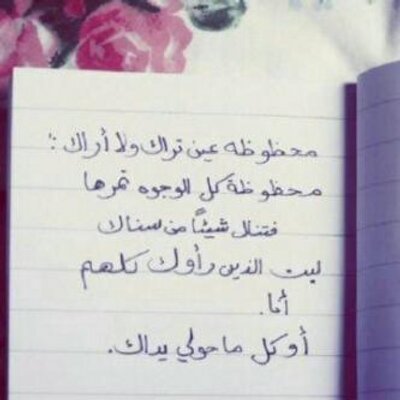 محظوظه عين تراك ولا أراك :
محظوظة كل الوجوه تمرها
فتنال شيئاً من سناك
ليت الذين رأوك كلهم
أنا.
أو كل ما حولي يداك.